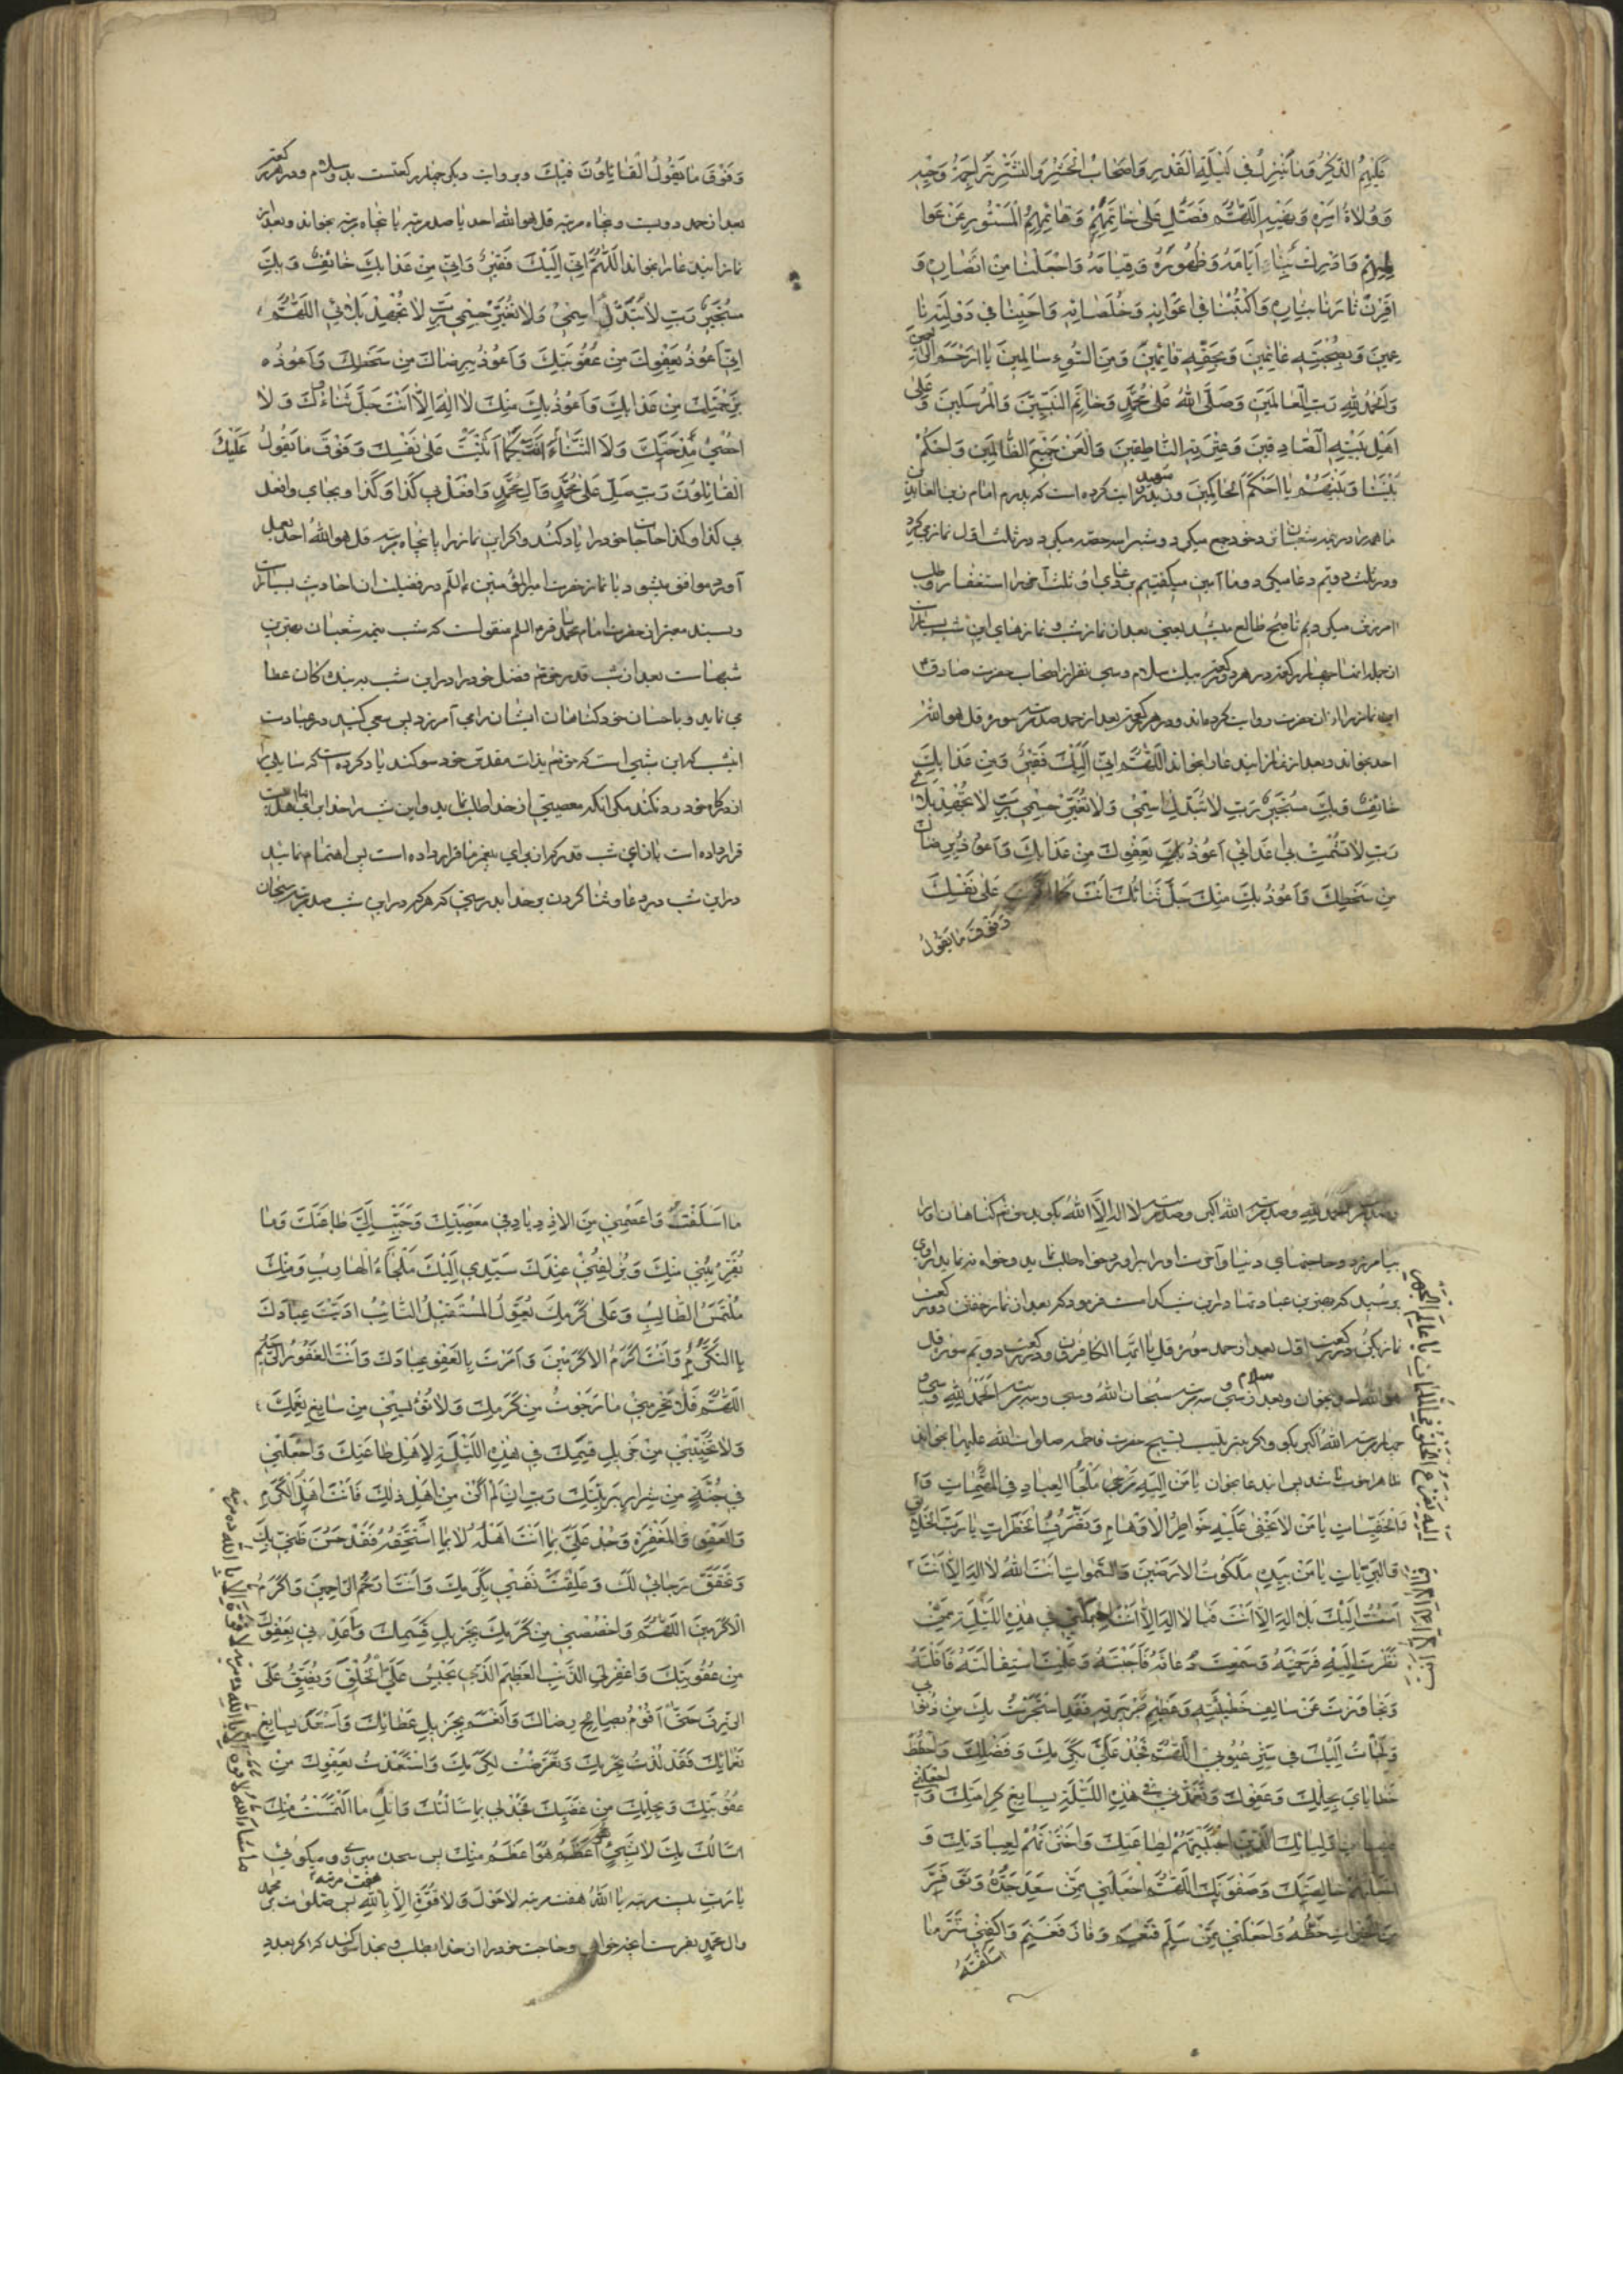 عَلَيْهِمُ الذِّكْرُ وَمَا يَنْزِلُ فِي لَيْلَةِ الْقَدْرِ وَاَصْحَابُ الْحَشْرِ وَالنَّشْرِ تَراجِمَةُ وَحْيِهِ
وَ وُلَاةُ اَمْرِهِ وَ نَهْيِهِ اَللّٰهُمَّ فَصَلِّ عَلىٰ خَاتَمِهِمْ وَ قَائِمِهِمُ الْمَسْتُورِ عَنْ عَوا
لِمِهِمْ وَ اَدْرِكْ بِنَا اَيَّامَهُ وَ ظُهُورَهُ وَ قِيَامَهُ وَ اجْعَلْنَا مِنْ اَنْصَارِهِ وَ
اقْرِنْ ثَارَنَا بِثَارِهِ وَ اكْتُبْنَا فِي اَعْوَانِهِ وَ خُلَصَائِهِ وَ اَحْيِنَا فِي دَوْلَتِهِ نَا
عِمِينَ وَ بِصُحْبَتِهِ غَانِمِينَ وَ بِحَقِّهِ قَائِمِينَ وَ مِنَ السُّوءِ سَالِمِينَ يَا اَرْحَمَ الرَّاحِمِينَ
وَ الْحَمْدُ لِلّٰهِ رَبِّ الْعَالَمِينَ وَ صَلَّى اللّٰهُ عَلىٰ مُحَمَّدٍ وَ خَاتَمِ النَّبِيِّينَ وَ الْمُرْسَلِينَ وَ عَلىٰ
اَهْلِ بَيْتِهِ الصَّادِقِينَ وَ عِتْرَتِهِ النَّاطِقِينَ وَ الْعَنْ جَمِيعَ الظَّالِمِينَ وَ احْكُمْ
بَيْنَنَا وَ بَيْنَهُمْ يَا اَحْكَمَ الْحَاكِمِينَ و زيد شهيد روايت كرده است كه پدرم امام زين العابدين
ما همه را در نيمه شعبان نزد خود جمع ميكرد و شب را سه حصه ميكرد در ثلث اول نماز ميكرد
و در ثلث دويم دعا ميكرد و ما آمين ميكفتيم بر دعاى او و ثلث آخر را استغفار و طلب
آمرزش ميكرديم تا صبح طالع ميشد يعنى بعد از نماز شب و نمازهاى اين شب بسيار است
از جمله انها چهار ركعت در هر دو ركعتى بيك سلام و سى نفر از اصحاب حضرت صادق ع
اين نماز را از ان حضرت روايت كرده‌اند و در هر ركعتى بعد از حمد صد مرتبه سورة قل هو الله
احد بخواند و بعد از نماز اين دعا را بخواند اَللّٰهُمَّ اِنِّي اِلَيْكَ فَقِيرٌ وَ مِنْ عَذَابِكَ
خَائِفٌ وَ بِكَ مُسْتَجِيرٌ رَبِّ لَا تُبَدِّلْ اِسْمِي وَ لَا تُغَيِّرْ جِسْمِي رَبِّ لَا تُجْهِدْ بَلَائِي
رَبِّ لَا تُشْمِتْ بِي اَعْدَائِي اَعُوذُ بِكَ بِعَفْوِكَ مِنْ عَذَابِكَ وَ اَعُوذُ بِرِضَاكَ
مِنْ سَخَطِكَ وَ اَعُوذُ بِكَ مِنْكَ جَلَّ ثَنَائُكَ اَنْتَ كَمَا عَلىٰ نَفْسِكَ
وَ فَوْقَ مَا يَقُولُ
وَ فَوْقَ مَا يَقُولُ الْقَائِلُونَ فِيكَ و بروايت ديكر چهار ركعتست بدو سلام و در هر ركعتى
بعد از حمد دويست و پنجاه مرتبه قل هو الله احد يا صد مرتبه يا پنجاه مرتبه بخواند و بعد از
نماز اين دعا را بخواند اَللّٰهُمَّ اِنِّي اِلَيْكَ فَقِيرٌ وَ اِنِّي مِنْ عَذَابِكَ خَائِفٌ وَ بِكَ
مُسْتَجِيرٌ رَبِّ لَا تُبَدِّلْ اِسْمِي وَ لَا تُغَيِّرْ جِسْمِي رَبِّ لَا تُجْهِدْ بَلَائِي اَللّٰهُمَّ
اِنِّي اَعُوذُ بِعَفْوِكَ مِنْ عُقُوبَتِكَ وَ اَعُوذُ بِرِضَاكَ مِنْ سَخَطِكَ وَ اَعُوذُ
بِرَحْمَتِكَ مِنْ عَذَابِكَ وَ اَعُوذُ بِكَ مِنْكَ لَا اِلٰهَ اِلَّا اَنْتَ جَلَّ ثَنَاءُكَ وَ لَا
اُحْصِي مِدْحَتَكَ وَ لَا الثَّنَاءَ عَلَيْكَ اَنْتَ كَمَا اَثْنَيْتَ عَلىٰ نَفْسِكَ وَ فَوْقَ مَا يَقُولُ
الْقَائِلُونَ رَبِّ صَلِّ عَلىٰ مُحَمَّدٍ وَ آلِ مُحَمَّدٍ وَ افْعَلْ بِي كَذَا وَ كَذَا و بجاى وافعل
بى كذا و كذا حاجات خود را ياد كند و اكر اين نماز را با پنجاه مرتبه قل هو الله احد بعمل
آورد موافق ميشود با نماز حضرت امير المؤمنين عليه السلم در فضيلت ان احاديث بسيار است
و بسند معتبر از حضرت امام محمد باقر عليه السلم منقولست كه شب نيمه شعبان بهترين
شبهاست بعد از شب قدر حقتعالى فضل خود را در اين شب به بندكان عطا
مى نمايد و باحسان خود كناهان ايشان را مى آمرزد پس سعى كنيد در عبادت
اين شب كه اين شبى است كه حقتعالى بذات مقدس خود سوكند ياد كرده است كه سايلى را
از دركاه خود رد نكند مكر آنكه معصيتى از خدا طلب نمايد و اين شب را خدا براى ما اهلبيت
قرار داده است بازاى شب قدر كه از براى پيغمبر ما قرار داده است پس اهتمام نمائيد
در اين شب در دعا و ثنا كردن بر خدا بدرستى كه هر كه در اين شب صد مرتبه سبحان
وصد مرتبه الحمد لله وصد مرتبه الله اكبر وصد مرتبه لا اله الا الله بكويد حقتعالى كناهان او را
بيامرزد و حاجتهاى دنيا و آخرت او را برآورد خواه طلب نمايد و خواه ننمايد راوى
پرسيد كه بهترين عبادتها در اين شب كدامست فرمود كه بعد از نماز خفتن دو ركعت
نماز بكن در ركعت اول بعد از حمد سوره قل يا ايها الكافرون و در ركعت دويم سوره قل
هو الله احد بخوان و بعد از سلام سى و سه مرتبه سُبْحَانَ اللّٰهِ و سى و سه مرتبه اَلْحَمْدُ لِلّٰهِ و سى و
چهار مرتبه اَللّٰهُ اَكْبَرُ بكو و اكر بترتيب تسبيح حضرت فاطمه صلوات الله عليها بخوانى
ظاهرا خوب باشد پس اين دعا بخوان يَا مَنْ اِلَيْهِ مَلْجَأُ الْعِبَادِ فِي الْمُهِمَّاتِ وَ
اِلَيْهِ يَفْزَعُ الْخَلْقُ فِي الْمُلِمَّاتِ يَا عَالِمَ الْجَهْرِ
وَ الْخَفِيَّاتِ يَا مَنْ لَا تَخْفىٰ عَلَيْهِ خَوَاطِرُ الْاَوْهَامِ وَ تَصَرُّفُ الْخَطَرَاتِ يَا رَبَّ الْخَلَائِقِ
وَ الْبَرِيَّاتِ يَا مَنْ بِيَدِهِ مَلَكُوتُ الْاَرَضِينَ وَ السَّمٰوَاتِ اَنْتَ اللّٰهُ لَا اِلٰهَ اِلَّا اَنْتَ
اَمُتُّ اِلَيْكَ بِلَا اِلٰهَ اِلَّا اَنْتَ فَيَا لَا اِلٰهَ اِلَّا اَنْتَ اجْعَلْنِي فِي هٰذِهِ اللَّيْلَةِ مِمَّنْ
نَظَرْتَ اِلَيْهِ فَرَحِمْتَهُ وَ سَمِعْتَ دُعَائَهُ فَاَجَبْتَهُ وَ عَلِمْتَ اسْتِقَالَتَهُ فَاَقَلْتَهُ
وَ تَجَاوَزْتَ عَنْ سَالِفِ خَطِيئَتِهِ وَ عَظِيمِ جَرِيرَتِهِ فَقَدِ اسْتَجَرْتُ بِكَ مِنْ ذُنُوبِي
وَ لَجَأْتُ اِلَيْكَ فِي سَتْرِ عُيُوبِي اَللّٰهُمَّ فَجُدْ عَلَيَّ بِكَرَمِكَ وَ فَضْلِكَ وَ احْطُطْ
خَطَايَايَ بِحِلْمِكَ وَ عَفْوِكَ وَ تَغَمَّدْنِي فِي هٰذِهِ اللَّيْلَةِ بِسَابِغِ كَرَامَتِكَ وَ اجْعَلْنِي
فِيهَا مِنْ اَوْلِيَائِكَ الَّذِينَ اجْتَبَيْتَهُمْ لِطَاعَتِكَ وَ اخْتَرْتَهُمْ لِعِبَادَتِكَ وَ
جَعَلْتَهُمْ خَالِصَتَكَ وَ صَفْوَتَكَ اَللّٰهُمَّ اجْعَلْنِي مِمَّنْ سَعَدَ جَدُّهُ وَ تَوَفَّرَ
مِنَ الْخَيْرَاتِ حَظُّهُ وَ اجْعَلْنِي مِمَّنْ سَلِمَ فَنَعِمَ وَ فَازَ فَغَنِمَ وَ اكْفِنِي شَرَّ مَا
اَسْلَفْتُهُ
مَا اَسْلَفْتُ وَ اعْصِمْنِي مِنَ الْاِزْدِيَادِ فِي مَعْصِيَتِكَ وَ حَبِّبْ اِلَيَّ طَاعَتَكَ وَ مَا
يُقَرِّبُنِي مِنْكَ وَ يُزْلِفُنِي عِنْدَكَ سَيِّدِي اِلَيْكَ مَلْجَاءُ الْهَارِبِ وَ مِنْكَ
مُلْتَمَسُ الطَّالِبِ وَ عَلىٰ كَرَمِكَ يُعَوِّلُ الْمُسْتَقِيلُ التَّائِبُ اَدَّبْتَ عِبَادَكَ
بِالتَّكَرُّمِ وَ اَنْتَ اَكْرَمُ الْاَكْرَمِينَ وَ اَمَرْتَ بِالْعَفْوِ عِبَادَكَ وَ اَنْتَ الْغَفُورُ الرَّحِيمُ
اَللّٰهُمَّ فَلَا تَحْرِمْنِي مَا رَجَوْتُ مِنْ كَرَمِكَ وَ لَا تُؤْيِسْنِي مِنْ سَابِغِ نِعَمِكَ
وَ لَا تُخَيِّبْنِي مِنْ جَزِيلِ قِسَمِكَ فِي هٰذِهِ اللَّيْلَةِ لِاَهْلِ طَاعَتِكَ وَ اجْعَلْنِي
فِي جُنَّةٍ مِنْ شِرَارِ بَرِيَّتِكَ رَبِّ اِنْ لَمْ اَكُنْ مِنْ اَهْلِ ذٰلِكَ فَاَنْتَ اَهْلُ الْكَرَمِ
وَ الْعَفْوِ وَ الْمَغْفِرَةِ وَ جُدْ عَلَيَّ بِمَا اَنْتَ اَهْلُهُ لَا بِمَا اَسْتَحِقُّهُ فَقَدْ حَسُنَ ظَنِّي بِكَ
وَ تَحَقَّقَ رَجَائِي لَكَ وَ عَلِقَتْ نَفْسِي بِكَرَمِكَ وَ اَنْتَ اَرْحَمُ الرَّاحِمِينَ وَ اَكْرَمُ
الْاَكْرَمِينَ اَللّٰهُمَّ وَ اخْصُصْنِي مِنْ كَرَمِكَ بِجَزِيلِ قِسَمِكَ وَ اَعُوذُ بِعَفْوِكَ
مِنْ عُقُوبَتِكَ وَ اغْفِرْ لِيَ الذَّنْبَ الْعَظِيمَ الَّذِي يَحْبِسُ عَلَيَّ الْخُلُقَ وَ يُضَيِّقُ عَلَيَّ
الرِّزْقَ حَتّىٰ اَقُومَ بِصَالِحِ رِضَاكَ وَ اَنْعَمَ بِجَزِيلِ عَطَائِكَ وَ اَسْعَدَ بِسَابِغِ
نَعْمَائِكَ فَقَدْ لُذْتُ بِحَرَمِكَ وَ تَعَرَّضْتُ لِكَرَمِكَ وَ اسْتَعَذْتُ بِعَفْوِكَ مِنْ
عُقُوبَتِكَ وَ بِحِلْمِكَ مِنْ غَضَبِكَ فَجُدْ لِي بِمَا سَاَلْتُكَ وَ اَنِلْ مَا الْتَمَسْتُ مِنْكَ
اَسْاَلُكَ بِكَ لَا بِشَيْءٍ هُوَ اَعْظَمُ مِنْكَ پس بسجده ميروى و ميكوئى
يَا رَبِّ بيست مرتبه يَا اَللّٰهُ هفت مرتبه لَا حَوْلَ وَ لَا قُوَّةَ اِلَّا بِاللّٰهِ هفت مرتبه پس صلوات بر محمد
وال محمد بفرست انچه خواهى و حاجت خود را از خدا بطلب و بخدا سوكند كه اكر بعدد
مَا شَاءَ اللّٰهُ ده مرتبه لَا قُوَّةَ اِلَّا بِاللّٰهِ ده مرتبه